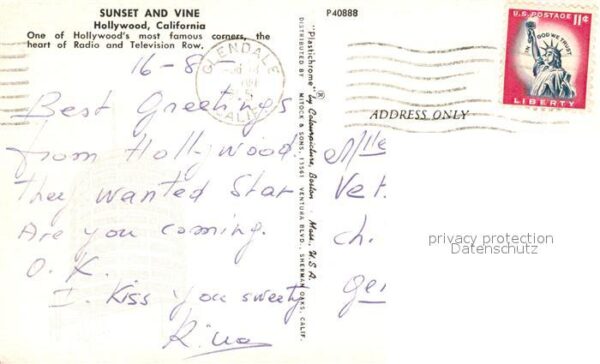 SUNSET AND VINE
Hollywood, California
One of Hollywood's most famous corners, the
heart of Radio and Television Row.
P40888
16-8-
GLENDALE
CALIF.
Best Greetings
from Hollywood.
They wanted Star
Are you coming.
O.K.
I Kiss you sweety
Rina
"Plastichrome" ® by Colourpicture, Boston, Mass., U.S.A.
DISTRIBUTED BY MITOCK & SONS, 13561 VENTURA BLVD., SHERMAN OAKS, CALIF.
U.S. POSTAGE 11¢
IN GOD WE TRUST
LIBERTY
ADDRESS ONLY
M/lle
Vet.
ch.
ger
privacy protection
Datenschutz